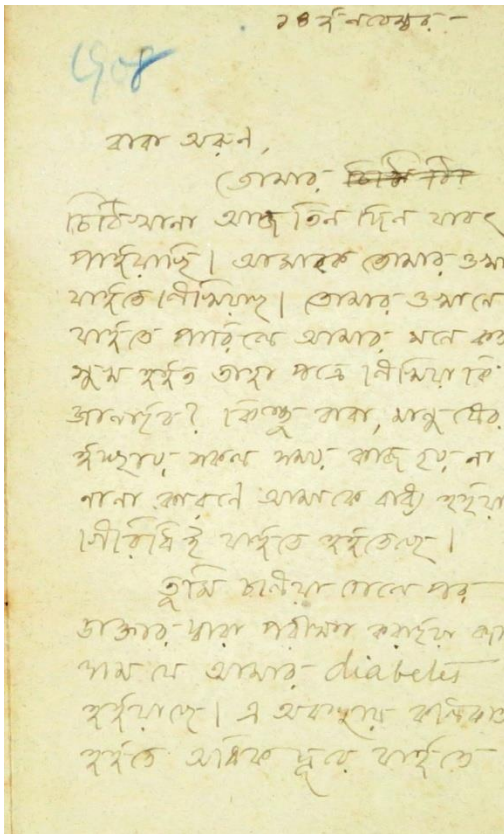 ১৪ই নবেম্বর –
১৯০৮
বাবা অরুণ,
তোমার
চিঠিখানা আজ তিন দিন যাবৎ
পাইয়াছি। আমাকে তোমার ওখা
যাইতে লিখিয়াছ। তোমার ওখানে
যাইতে পারিলে আমার মনে কত
সুখ হইত তাহা পত্রে লিখিয়া কি
জানাইব? কিন্তু বাবা, মানুষের
ইচ্ছায় সকল সময় কাজ হয় না
নানা কারণে আমাকে বাধ্য হইয়া
গিরিধিই যাইতে হইতেছে।
তুমি চলিয়া গেলে পর
ডাক্তার দ্বারা পরীক্ষা করাইয়া জা
লাম যে আমার diabetes
হইয়াছে। এ অবস্থায় কলিকাত
হইতে অধিক দূরে যাইতে